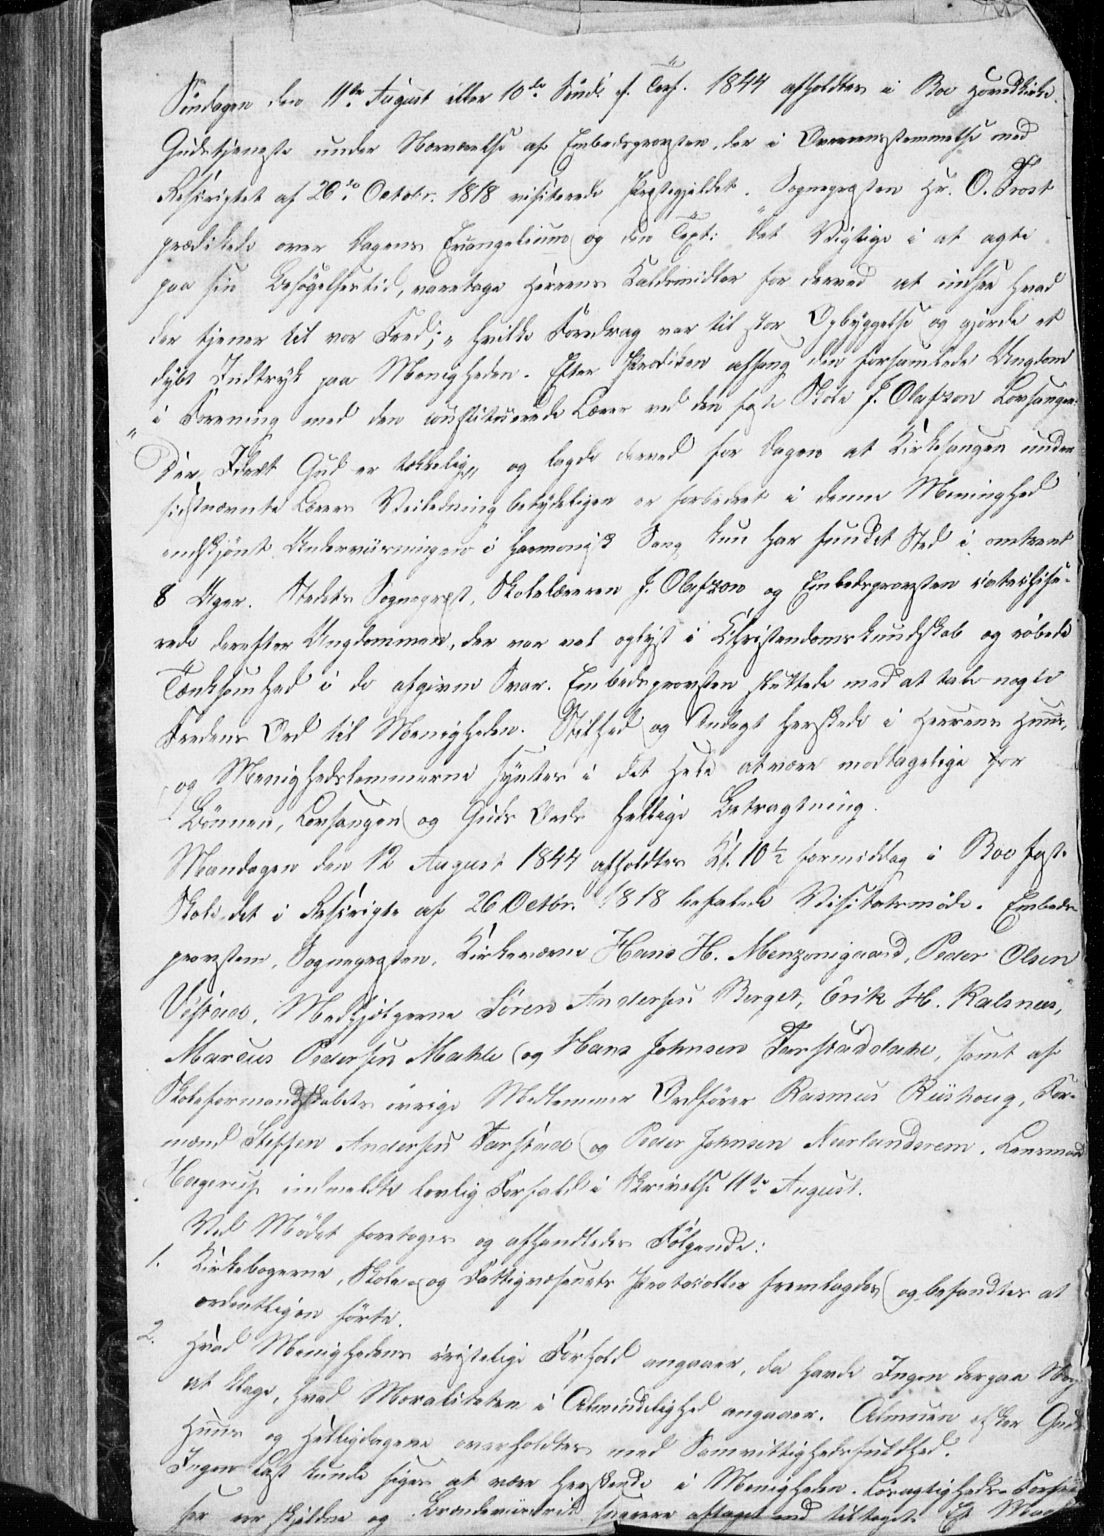 Søndagen den 11te August eller 10de Sønd: f. Tref. 1844 afholdtes i Boe Hovedkirke
Gudstjeneste under Nærværelse af Embedsprovsten, der i Overensstemmelse med
Rescriptet af 26de Octobr. 1818 visiterede Præstegjeldet. Sognepræsten Hr. O. Irost
prædikede over Dagens Evangelium og den Text: "Det Vigtige i at agte
paa sin Besøgelsestid, modtage Herrens Kaldsmidler for derved at indsee hvad
der tjener til vor Fred;" hvilke Foredrag var til stor Opbyggelse og gjorde et
dybt Indtryk paa Menigheden. Efter Prædiken afsang den forsamlede Ungdom
i Forening med den constituerede Lærer ved den faste Skole J. Olafson Lovsangen:
"Dig Gud er" og lagde derved for Dagen at Kirkesangen under
sidstnævnte Lærers Veiledning betydeligen er forbedret i denne Meninghed
endskjønt Underviisningen i harmonisk Sang kun har fundet Sted i omtrent
8 Uger. Stedets Sognepræst, Skolelæreren J. Olafson og Embedsprovsten catechise-
rede derefter Ungdommen, der var vel oplyst i Christendomskundskab og røbede
Tænksomhed i de afgivne Svar. Embedsprovsten sluttede med at tale nogle
Fredens Ord til Menigheden. Stilhed og Andagt herskede i Herrens Huus,
og Menighedslemmerne syntes i det Hele at være modtagelige for
Bønnen, Lovsangen og Guds Ords hellige Betragtning.
Mandagen den 12 August 1844 afholdtes Kl. 10½ Formiddag i Boe fast-
Skole det i Rescripte af 26 Octbr. 1818 befalede Visitatsmøde. Embeds
provsten, Sognepræsten, Kirkeværne Hans H. Menzonigaard, Peder Olsen
Vestad, Medhjælperne Søren Andersen Berget, Erik H. Kalsnes,
Marcus Pedersen Mahle og Hans Johnsen Farstadelake, samt af
Skoleformandskabets øvrige Medlemmer Ordfører Rasmus Riishoug, For-
mænd Steffen Andersen Farstad og Peder Johnsen Nærlandsrem. Lensmand
Hagerup indmeldte lovlig Forfald i Skrivelse 11te August.
Ved Mødet foretoges og afhandledes Følgende:
1. Kirkebøgerne, Skole- og Fattigvæsenets Protocoller fremlagdes og befandtes at
ordentligen førte.
2. Hvad Menighedens christelige Forhold angaaer, da havde Ingen derpaa Noget
at klage, hvad Moraliteten i Almindelighed angaaer. Almuen elsker Guds
Huus og Helligdagene overholdtes med Samvittighedsfuldhed.
Ingen Last kunde siges at være herskende i Menigheden. Løsagtigheds-Forseelser
her ere sjeldne og Brændeviinsdrik snarere aftaget end tiltaget. Et